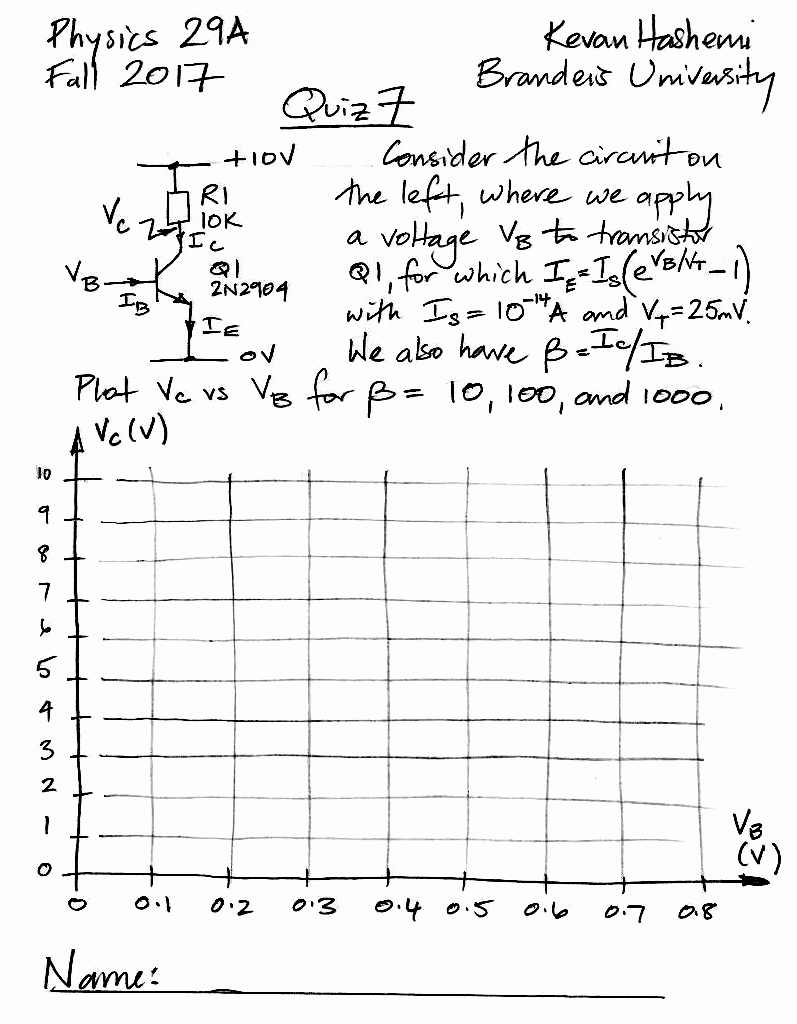 Physics 29A
Kevan Hashemi
Fall 2017
Brandeis University
Quiz 7
+10V
R1
10K
Vc
Ic
VB
Q1
2N2904
IB
IE
0V
Consider the circuit on
the left, where we apply
a voltage VB to transistor
Q1, for which IE=Is(e^VB/VT-1)
with Is = 10^-14 A and VT=25mV.
We also have β=Ic/IB.
Plot Vc vs VB for β= 10, 100, and 1000.
Vc(V)
10
9
8
7
6
5
4
3
2
1
0
VB
(V)
0 0.1 0.2 0.3 0.4 0.5 0.6 0.7 0.8
Name: